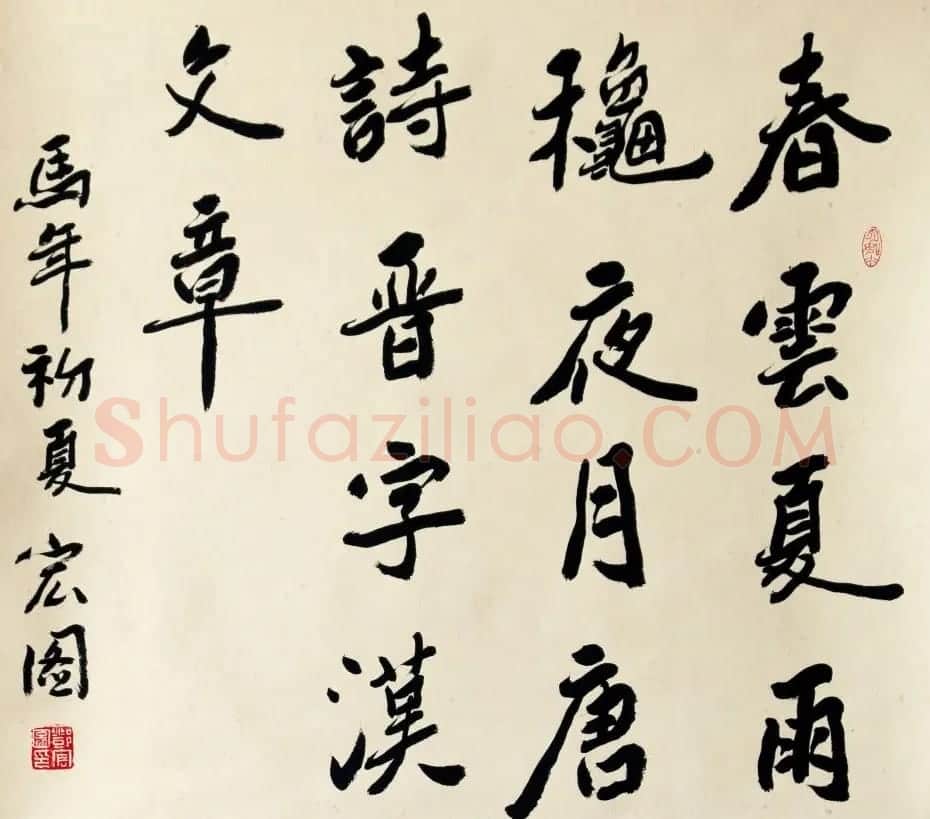 春雲夏雨
龝夜月唐
詩晋字漢
文章
馬年初夏 宏图
Shufaziliao.COM